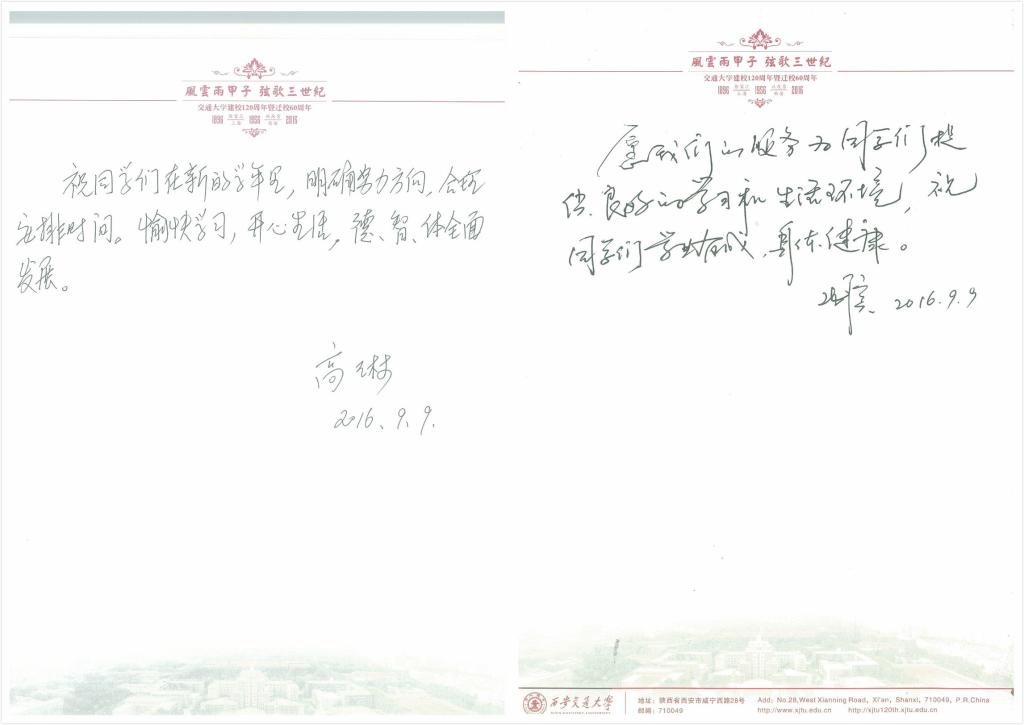 風雲雨甲子 弦歌三世纪
交通大学建校120周年暨迁校60周年
1896 1956 2016
祝同学们在新的学年里，明确努力方向，合理
安排时间。愉快学习，开心生活，德、智、体全面
发展。
高琳
2016.9.9.
風雲雨甲子 弦歌三世紀
交通大学建校120周年暨迁校60周年
1896 1956 2016
愿我们的服务为同学们提
供良好的学习和生活环境，祝
同学们学业有成，身体健康。
2016.9.9
西安交通大学
地址：陕西省西安市咸宁西路28号 Add：No.28,West Xianning Road, Xi'an, Shanxi, 710049, P.R.China
邮编：710049 http://www.xjtu.edu.cn http://xjtu120th.xjtu.edu.cn